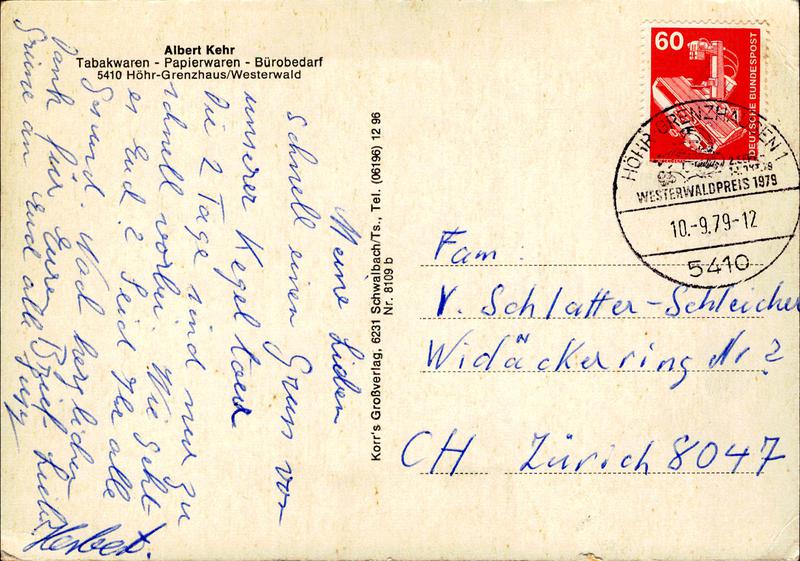 Albert Kehr
Tabakwaren - Papierwaren - Bürobedarf
5410 Höhr-Grenzhaus/Westerwald
Meine Lieben
schnell einen Gruss von
unserer Kegeltour
Die 2 Tage sind nur zu
schnell vorbei. Wie geht
es Euch? Seid Ihr alle
Gesund. Noch herzlichen
Dank für Euren Brief. Liebe
Grüsse an Euch alle
Herbert.
Korr's Großverlag, 6231 Schwalbach/Ts., Tel. (06196) 12 96
Nr. 8109 b
60
DEUTSCHE BUNDESPOST
HÖHR-GRENZHAUSEN 1
WESTERWALDPREIS 1979
10.-9.79-12
5410
Fam.
V. Schlatter-Schleicher
Widäckerring Nr 2
CH Zürich 8047